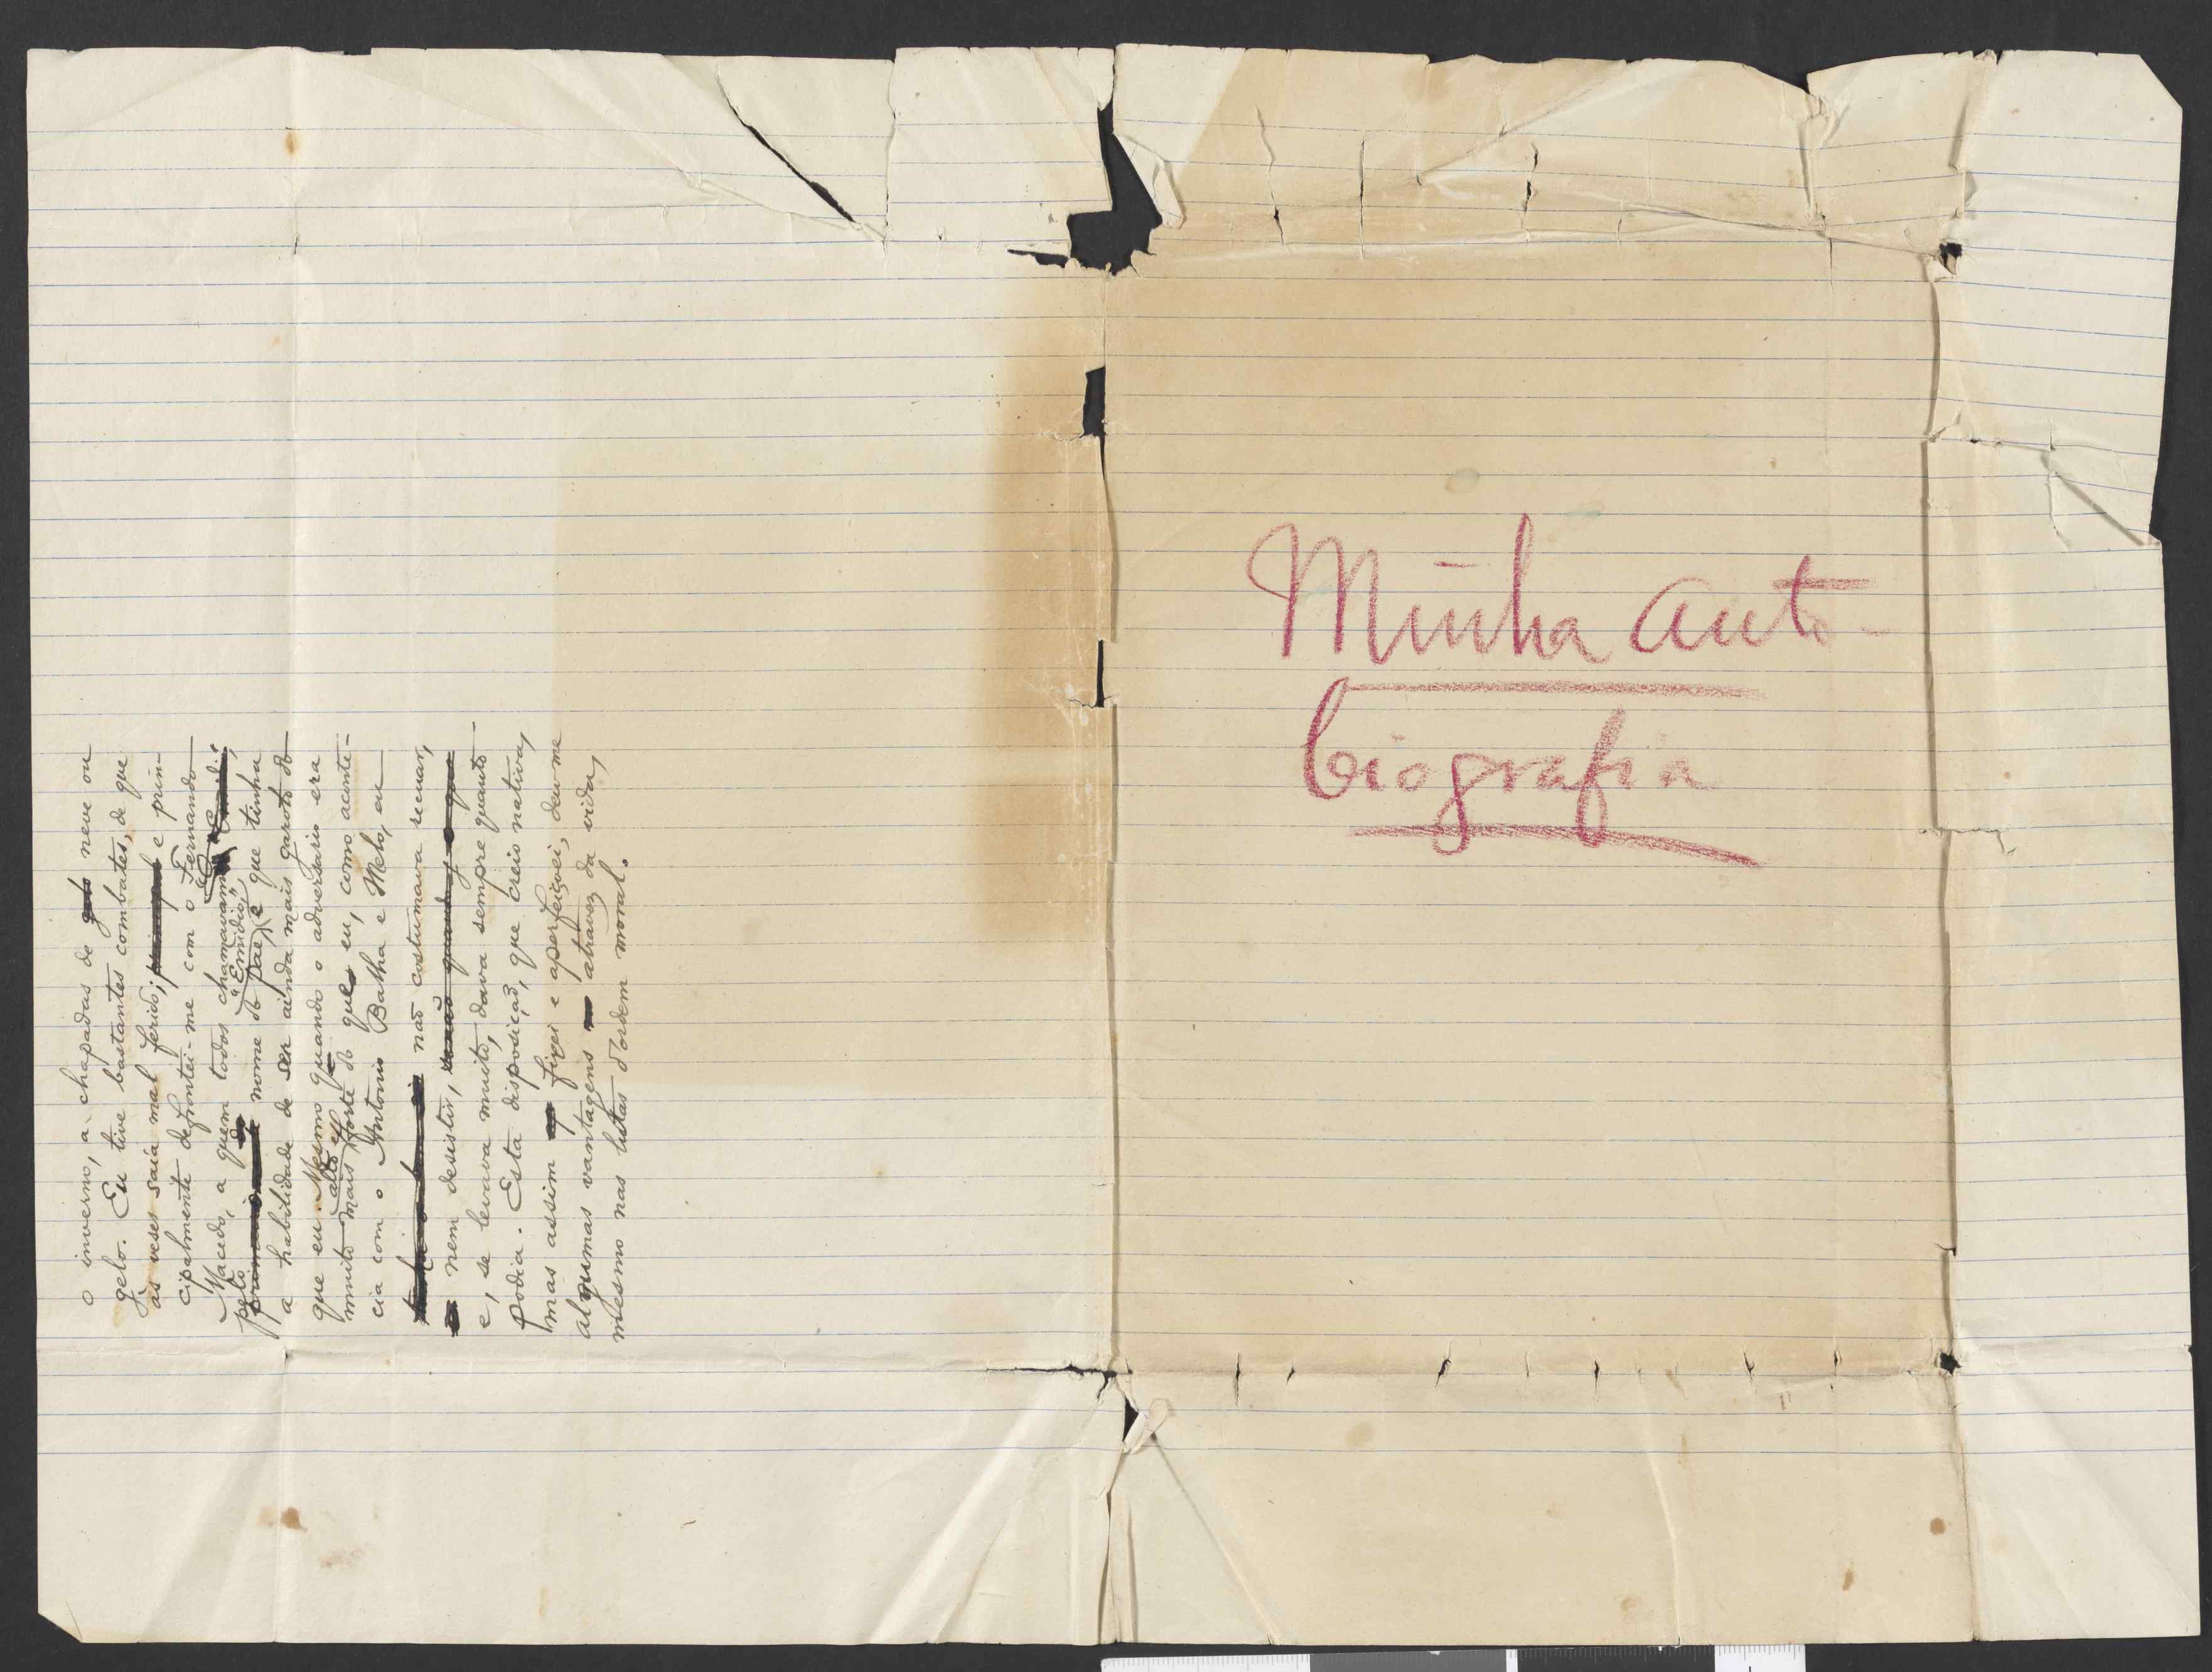 Minha auto-
biografia
o inverno, a chapadas de neve ou
gelo. Eu tive bastantes combates, de que
às veses saía mal ferido; e prin-
cipalmente defrontei-me com o Fernando
Macedo, a quem todos chamavam
pelo nome do pae, "Emidio", e que tinha
a habilidade de ser ainda mais garoto do
que eu. Mesmo quando o adversario era
muito mais alto e forte do que eu, como aconte-
cia com o Antonio Batha e Melo, eu
não costumava recuar,
nem desistir,
e, se levava muito, dava sempre quanto
podia. Esta disposição, que creio nativa,
mas assim fixei e aperfeiçoei, deu-me
algumas vantagens atravez da vida,
mesmo nas lutas d'ordem moral.